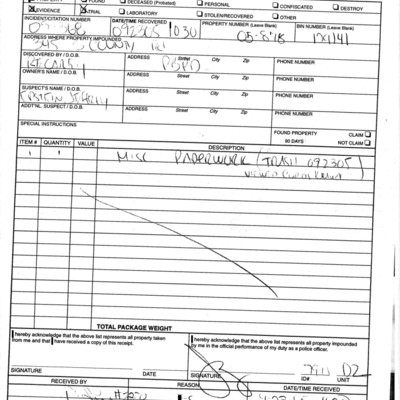 FOUND DECEASED (Probated) PERSONAL CONFISCATED DESTROY
X EVIDENCE TRIAL LABORATORY STOLEN/RECOVERED OTHER
INCIDENT/CITATION NUMBER DATE/TIME RECOVERED PROPERTY NUMBER (Leave Blank) BIN NUMBER (Leave Blank)
05-368 092305 1030
ADDRESS WHERE PROPERTY IMPOUNDED
345 S COUNTY Rd
DISCOVERED BY / D.O.B. ADDRESS Street City Zip PHONE NUMBER
PBPD
OWNER'S NAME / D.O.B. ADDRESS Street City Zip PHONE NUMBER
SUSPECT'S NAME / D.O.B. ADDRESS Street City Zip PHONE NUMBER
EPSTEIN JEFFREY
ADDTNL. SUSPECT / D.O.B. ADDRESS Street City Zip PHONE NUMBER
SPECIAL INSTRUCTIONS
FOUND PROPERTY CLAIM
90 DAYS NOT CLAIM
ITEM # QUANTITY VALUE DESCRIPTION
1 1 MISC PAPERWORK (TRASH 092305)
TOTAL PACKAGE WEIGHT
I hereby acknowledge that the above list represents all property taken from me and that I have received a copy of this receipt.
I hereby acknowledge that the above list represents all property impounded by me in the official performance of my duty as a police officer.
SIGNATURE DATE SIGNATURE ID# UNIT
RECEIVED BY REASON DATE/TIME RECEIVED